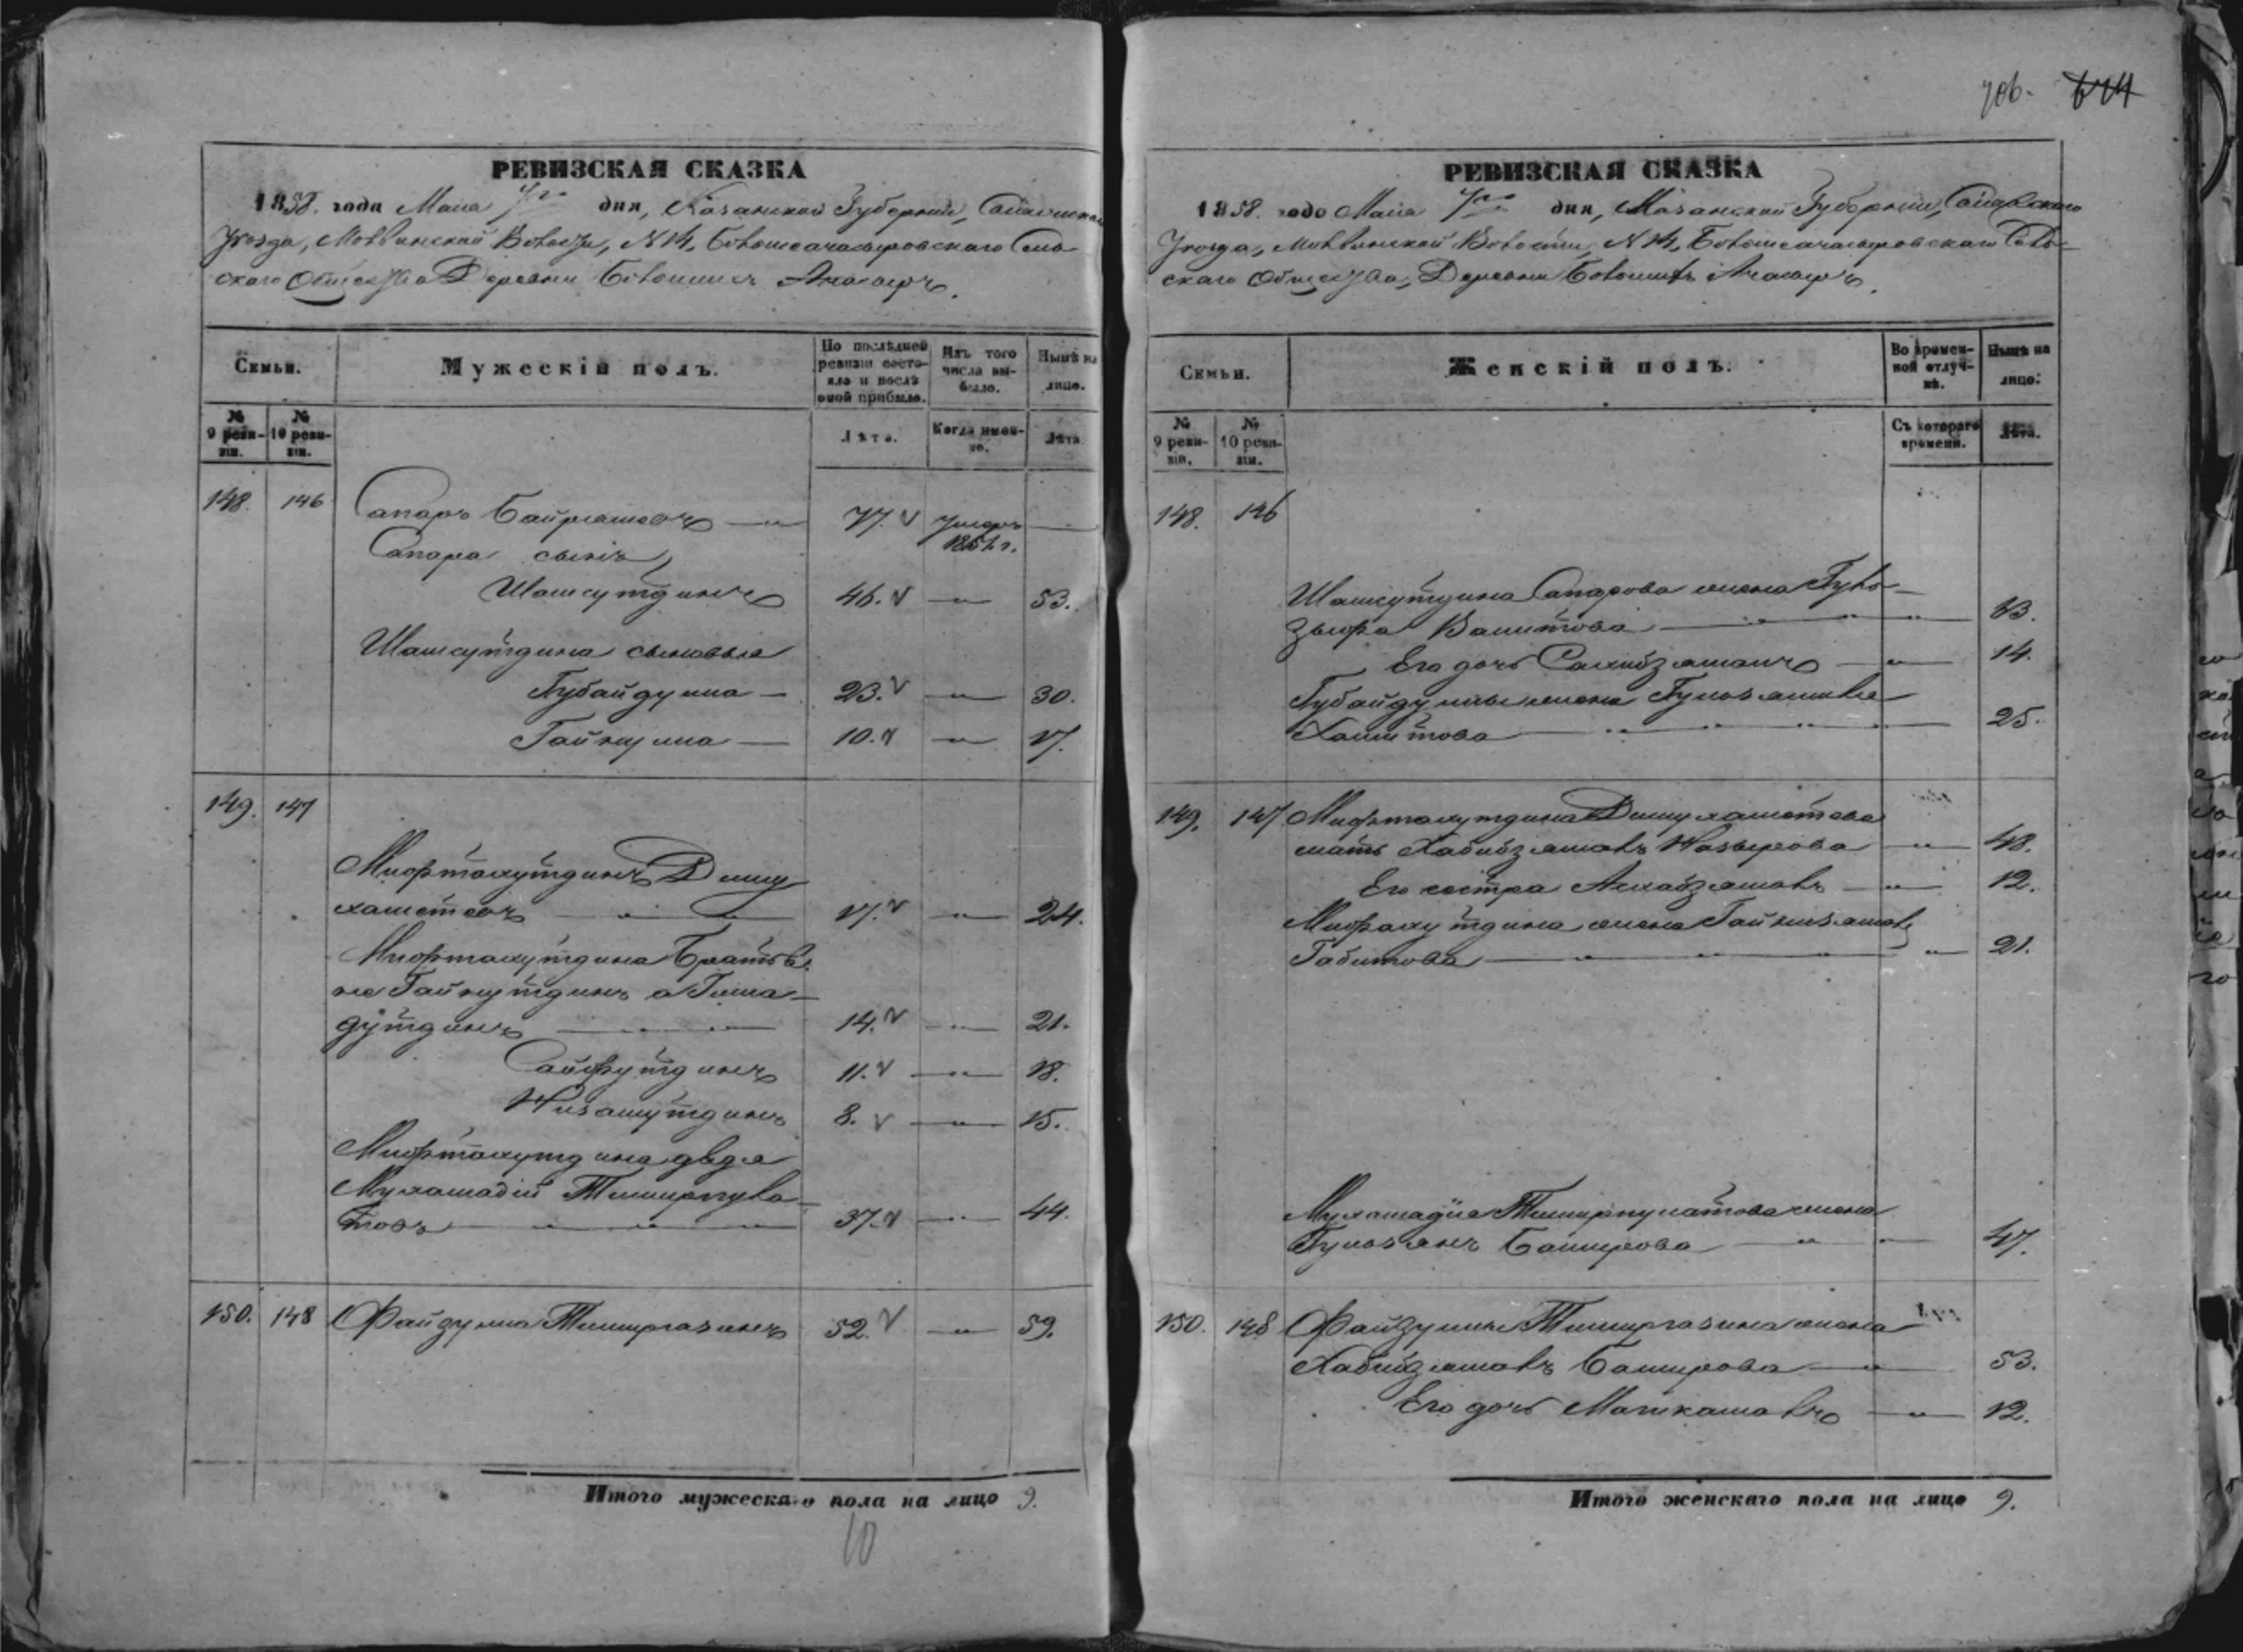 706. 614
РЕВИЗСКАЯ СКАЗКА
1858. года Маiя 7го дня, Казанской Губернiи,
Уезда, Волости, N 14, Большеачасырскаго Сель-
скаго Общества Деревни Большихъ Ачасыръ.
Семьи.
Мужескiй полъ.
По послѣдней ревизiи состо-
яло и послѣ оной прибыло.
Изъ того числа вы-
было.
Нынѣ на лицо.
№ 9 реви-
зiи.
№ 10 реви-
зiи.
Лѣта.
Когда имен-
но.
Лѣта
148. 146 Сапаръ Байрашевъ 77. Умеръ
Сапара сынъ
Шамсутдинъ 46. 53.
Шамсутдина сыновья
Губайдулла 23. 30.
Гайнулла 10. 17.
149. 147
Мифтахутдинъ Динму-
хаметевъ 17. 24.
Мифтахутдина Братья
Гайнутдинъ а Гима-
дутдинъ 14. 21.
Сайфутдинъ 11. 18.
Низамутдинъ 8. 15.
Мифтахутдина дядя
Мухамадiй Тимирпула-
товъ 37. 44.
150. 148 Файзулла Тимиргазинъ 52. 59.
Итого мужескаго пола на лицо 9.
10
РЕВИЗСКАЯ СКАЗКА
1858. года Маiя 7го дня, Казанской Губернiи,
Уезда, Волости, N 14, Большеачасырскаго Сель-
скаго Общества, Деревни Большихъ Ачасыръ.
Семьи.
Женскiй полъ.
Во времен-
ной отлуч-
кѣ.
Нынѣ на лицо.
№ 9 реви-
зiи.
№ 10 реви-
зiи.
Съ котораго времени.
Лѣта.
148. 146
Шамсутдина Сапарова жена Гуль-
зюфа Вашитова 53.
Его дочь Сахибзямалъ 14.
Губайдуллы жена Гульзямиля
Хамитова 25.
149. 147 Мифтахутдина Динмухаметева
мать Хабибзямалъ Назырова 48.
Его сестра 12.
Мифтахутдина жена Гайнизямалъ
Габитова 21.
Мухамадiя Тимирпулатова жена
Гульзянъ Баширова 47.
150. 148 Файзуллы Тимиргазина жена
Хабибзямалъ Баширова 53.
Его дочь Магикамалъ 12.
Итого женскаго пола на лицо 9.